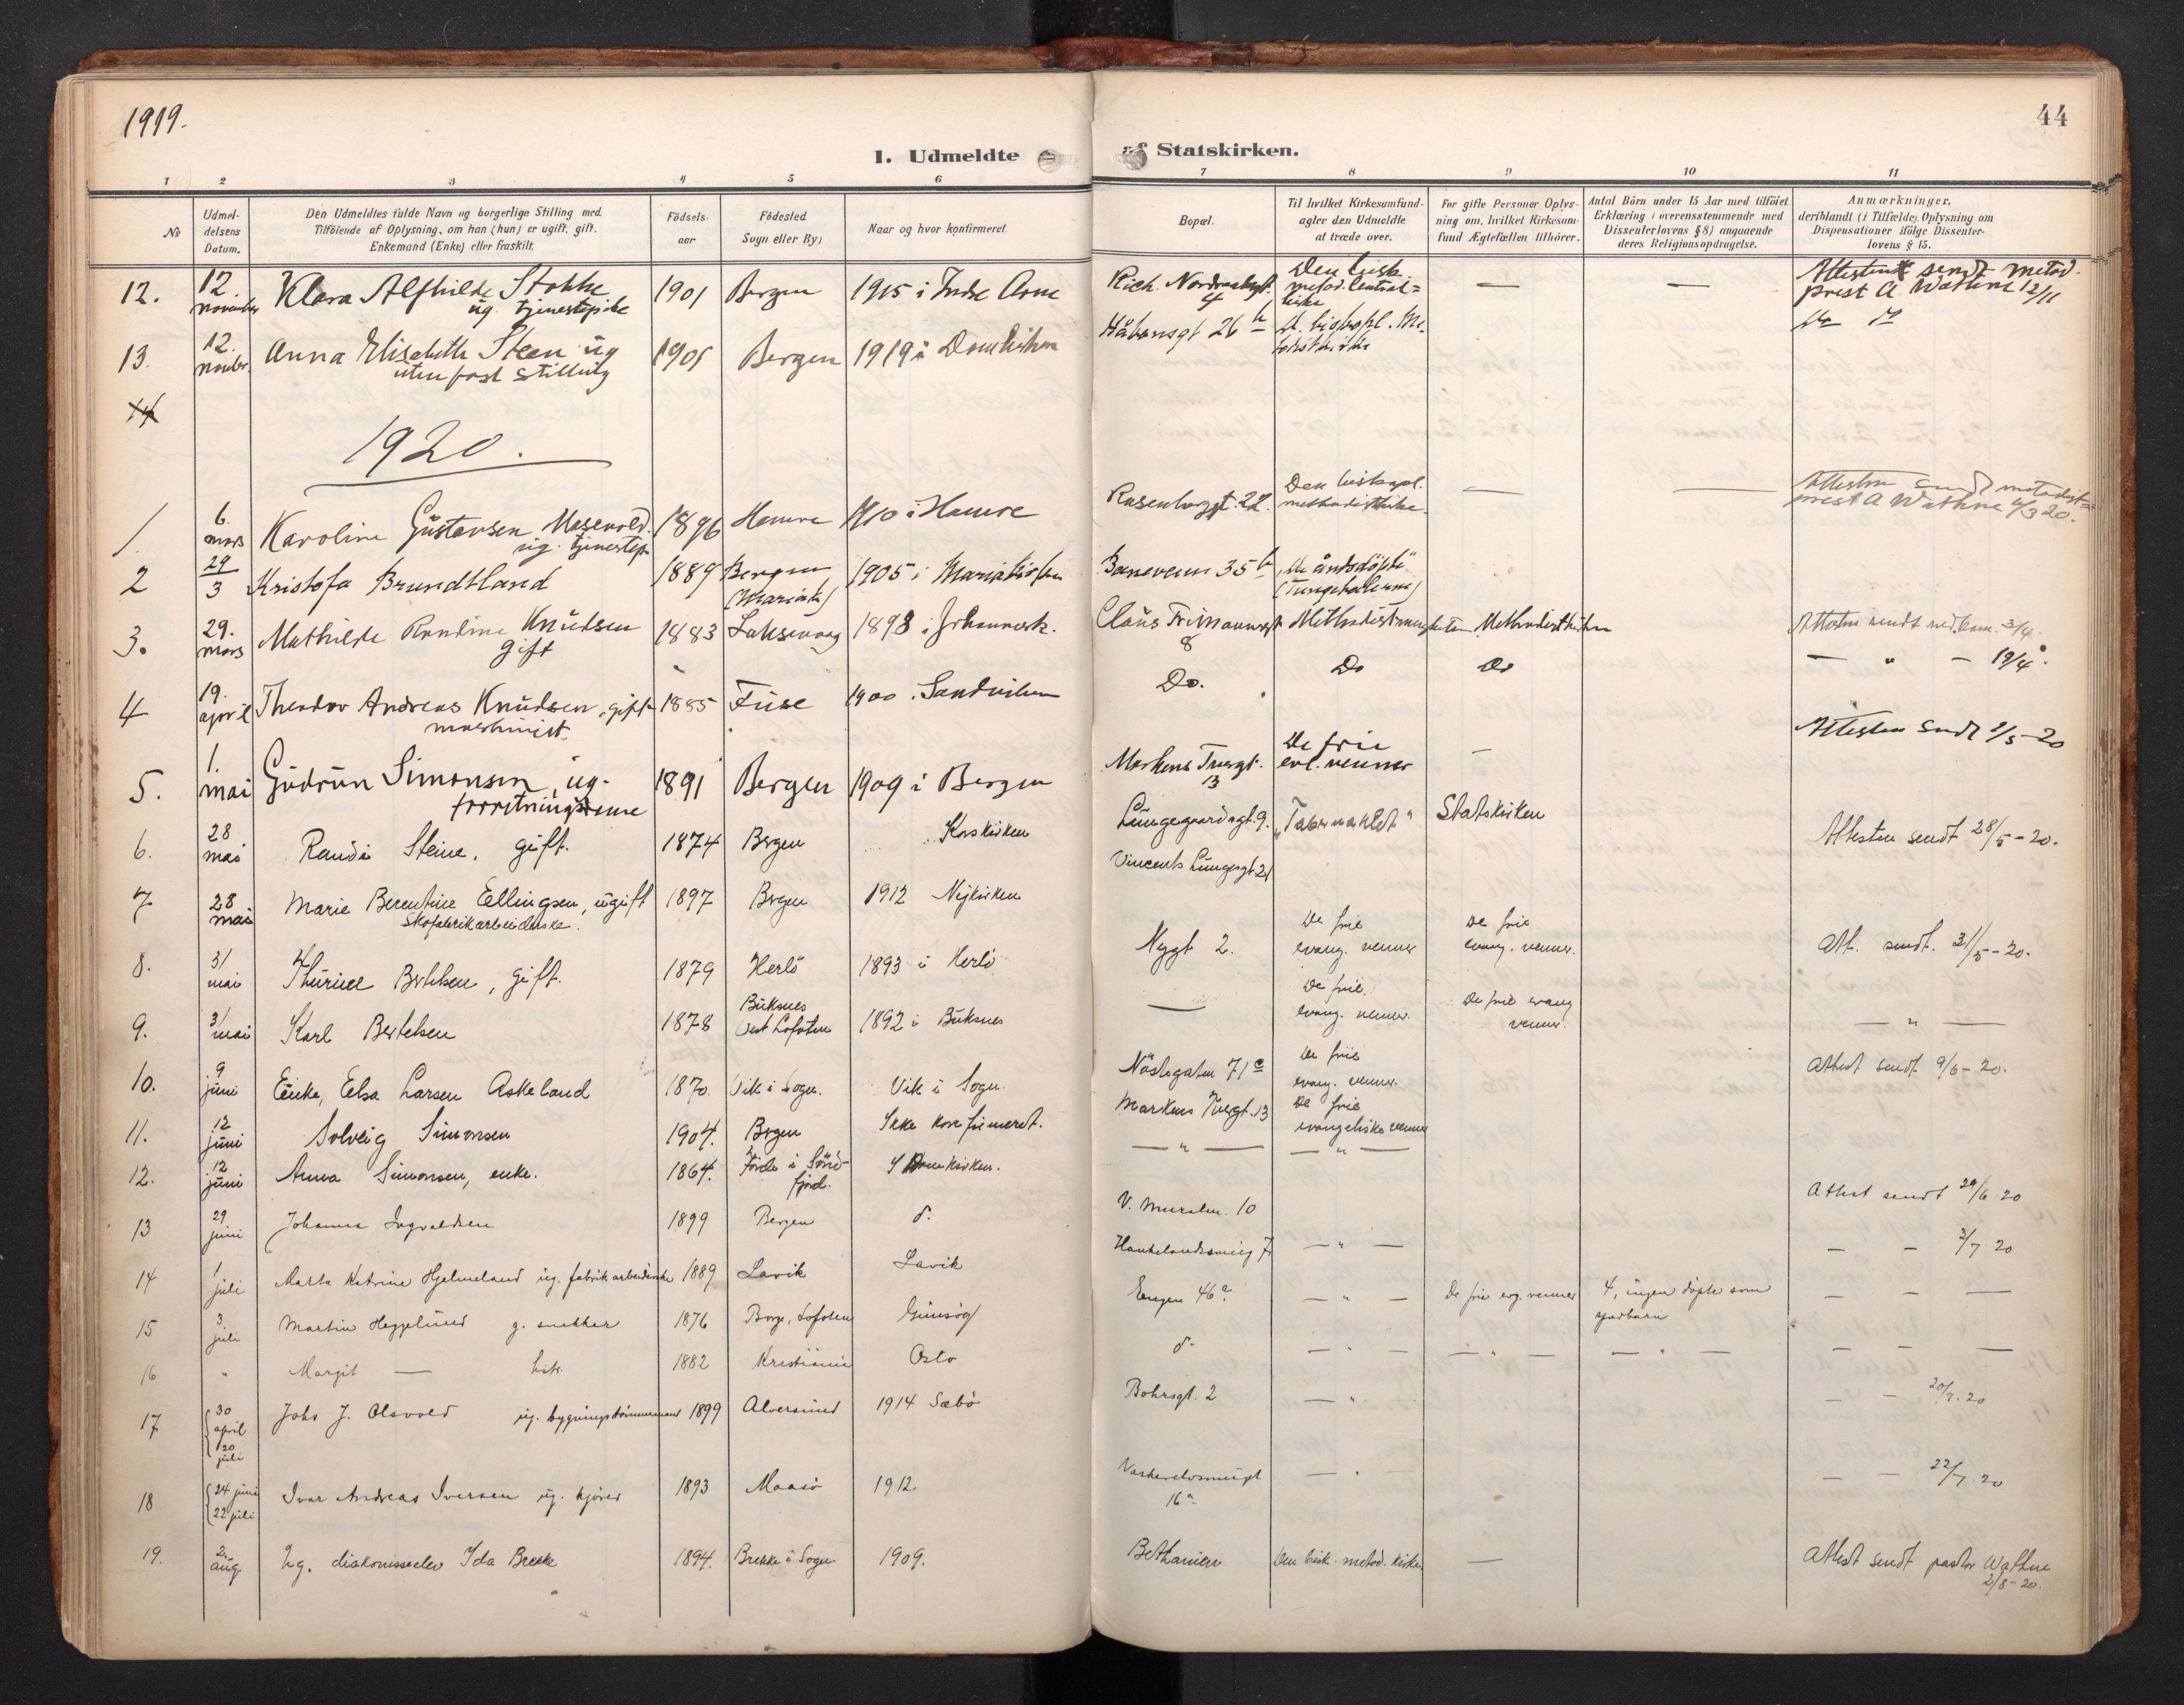 1919.
44
1. Udmeldte af Statskirken.
1 2 3 4 5 6 7 8 9 10 11
No
Udmel-
delsens
Datum.
Den Udmeldtes fulde Navn og borgerlige Stilling med
Tilföiende af Oplysning, om han (hun) er ugift, gift,
Enkemand (Enke) eller fraskilt.
Födsels-
aar
Födested
Sogn eller By)
Naar og hvor konfirmeret.
Bopæl.
Til hvilket Kirkesamfund-
agter den Udmeldte
at træde over.
For gifte Personer Oplys-
ning om, hvilket Kirkesam-
fund Ægtefællen tilhörer.
Antal Börn under 15 Aar med tilföiet
Erklæring i overensstemmende med
Dissenterlovens § 8) angaaende
deres Religionsopdragelse.
Anmærkninger,
deriblandt (i Tilfælde) Oplysning om
Dispensationer ifölge Dissenter-
lovens § 15.
12. 12. november Klara Alfhilde Stokke 1901 Bergen 1915 i Indre Arne
ug. tjenestepike
Rich. Nordraaksgt. 4 Den bisk. metod. Central= kirke — — Attesten sendt metod. prest A Wathne 12/11
13. 12. novbr. Anna Elisabeth Steen ug 1905 Bergen 1919 i Domkirken
uten fast stilling
Håkonsgt 26 b
14
1920.
1. 6. mars Karoline Gustavsen 1896 Hamre 1910 i Hamre
ug. tjenestep.
Rosenborggt. 22. Den biskopl. methodistkirke. — — Attesten sendt metodist= prest A Wathne 6/3 20.
2 29/3 Kristofa Brundtland 1889 Bergen (Mariak) 1905 i Mariakirken
Baneveien 35 b De åndsdöpte (Tungetalerne)
3. 29. mars Mathilde Randine Knudsen 1883 Laksevaag 1898 i Johannesk.
gift
Claus Frimannsgt 8 Methodistmenigheten Methodistkirken 3/4
4 19. april Theodor Andreas Knudsen, gift 1885 Fuse 1900 . Sandviken
maskinist.
Do. Do Do — " — 19/4.
5. 1. mai Gudrun Simonsen, ug. 1891 Bergen 1909 i Bergen
forretningsdame
Markens Tvergt. 13 De frie evl. venner — Attesten sendt 1/5-20
6. 28 mai Randi Steine, gift. 1874 Bergen Korskirken
Lungegaardsgt. 9. "Tabernaklet" Statskirken Attesten sendt 28/5-20.
7 28 mai Marie Berentine Ellingsen, ugift 1897 Bergen 1912 Nykirken
Skofabrikarbeiderske.
Vincents Lungesgt. 21
8. 31 mai Thurine Bertelsen, gift. 1879 Herlö 1893 i Herlö
Nygt 2. De frie evang. venner De frie evang. venner. Att. sendt. 31/5-20.
9. 31 mai Karl Bertelsen 1878 Buksnes Vest Lofoten 1892 i Buksnes
— De frie evang. venner. De frie evang venner. — " —
10. 9 juni Enke, Elsa Larsen Askeland 1870. Vik i Sogn. Vik i Sogn.
Nöstegaten 71 a De frie evang. venner. Attest sendt 9/6-20.
11. 12 juni Solveig Simonsen 1904. Bergen Ikke konfirmeret.
Markens Tvergt. 13 De frie evangeliske venner
12. 12 juni Anna Simonsen, enke. 1864. Förde i Sönd- fjord. I Domkirken.
— " — — " —
13 29 juni Johanna Ingvaldsen 1899 Bergen d.
V. Muralm. 10 Attest sendt 29/6 20
14 1 juli Marta Katrine Hjelmeland ug. fabrikarbeiderske 1889 Lavik Lavik
Haukelandsveieg 7 — " — — — 2/7 20
15 3. juli Martin Heggelund g. snekker 1876 Borge, Lofoten Gimsöy
Engen 46 a. — " — De frie evg. venner 4, ingen döpte som spedbarn — — —
16 " Margit — hstr. 1882 Kristiania Oslo
d. — " — — " — — " — — — —
17 30 april 20 juli Johs J. Olsvold ug. bygningstömmermand 1899 Alversund 1914 Sæbö
Bohrsgt. 2 — " — — 20/7.20
18 24 juni 22 juli Ivar Andreas Iversen ug. kjörer 1893 Maasö 1912
16 a — " — — 22/7.20
19. 2. aug. Ug. diakonisseelev Ida Brekke 1894. Brekke i Sogn. 1909.
Bethanien Den bisk. metod. kirke. — Attest sendt pastor Wathne
2/8-20.